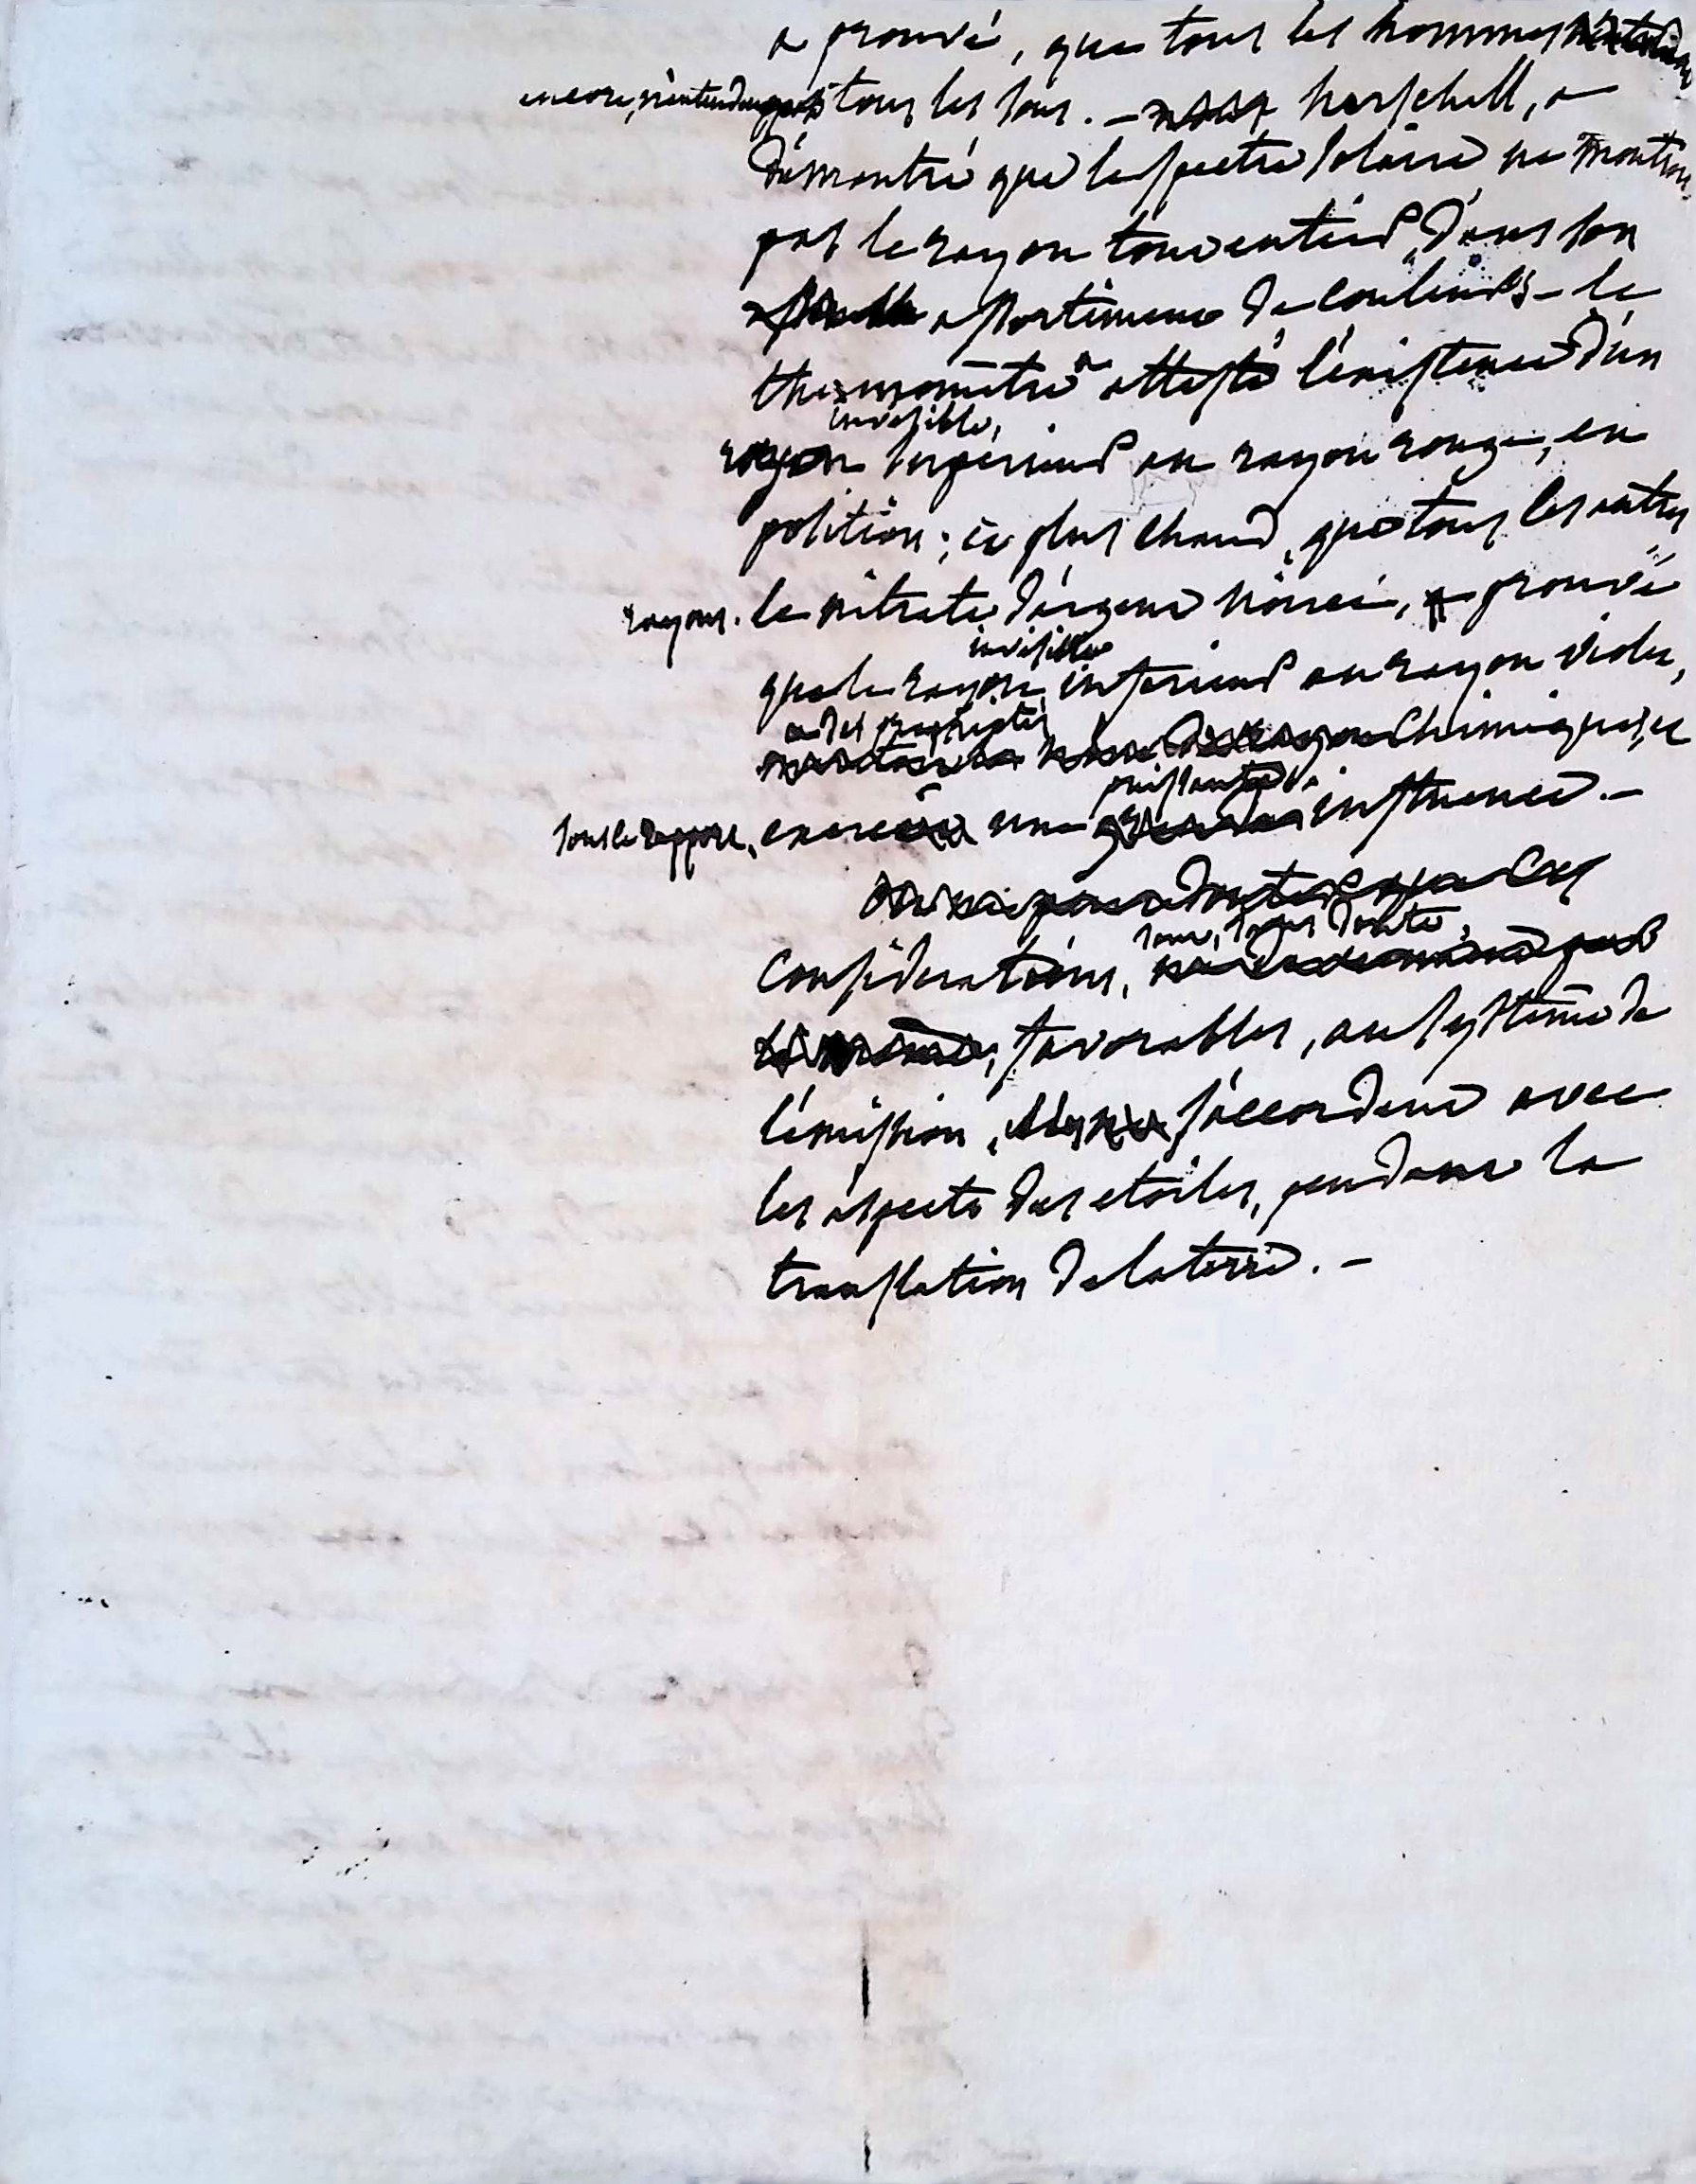 a prouvé, que tous les hommes
encore, n'entendent pas tous les sons. – herschell, a
démontré que le spectre solaire ne montre
pas le rayon tout entier, dans son
assortiment de couleurs – le
thermomètre a attesté l'existence d'un
invisible,
rayon superieur au rayon rouge, en
position; et plus chaud, que tous les autres
rayons. le nitrate d'argent noirci, a prouvé
invisible
que le rayon inferieur au rayon violet,
a des propriétés
chimiques, et
puissante
sous ce rapport, exerce une influence. –
ces
sont, sans doute,
considerations,
favorables, au systême de
l'émission, s'accordent avec
les aspects des etoiles, pendant la
translation de la terre. –